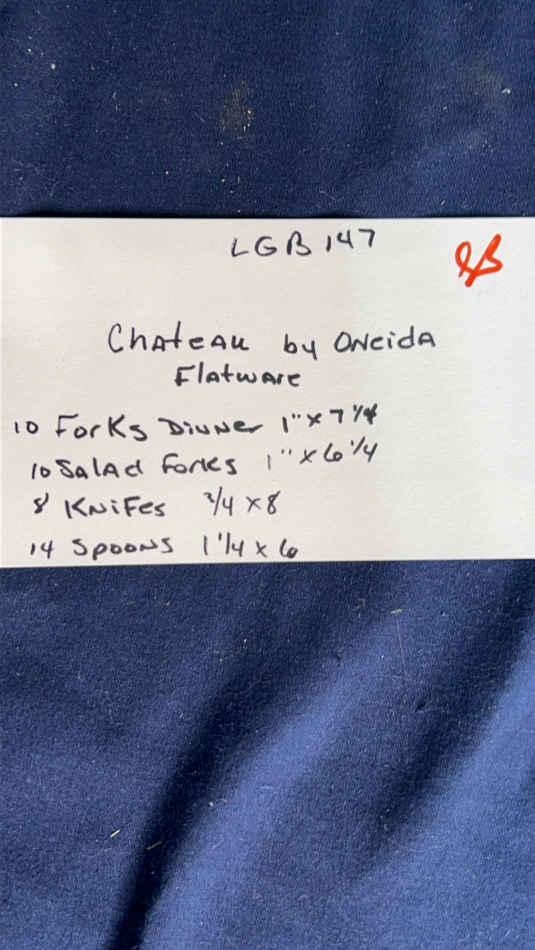 LGB 147
Chateau by Oneida
Flatware
10 Forks Dinner 1" x 7 1/4
10 Salad Forks 1" x 6 1/4
8 Knifes 3/4 x 8
14 Spoons 1 1/4 x 6